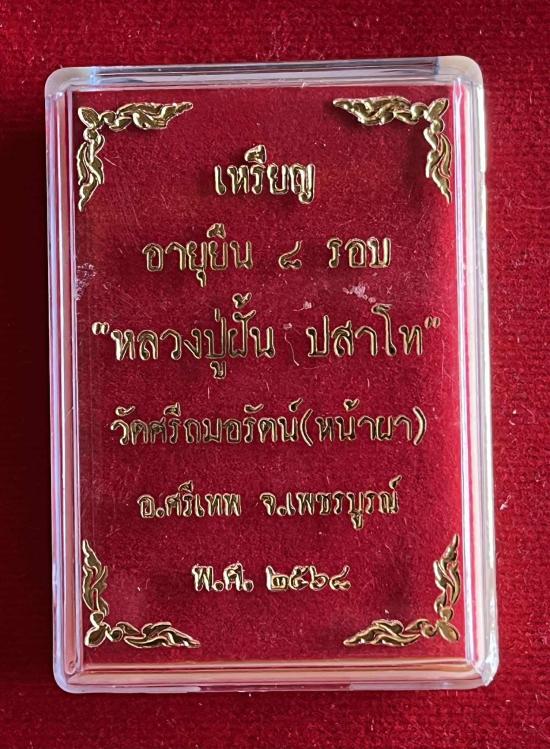 เหรียญ
อายุยืน ๘ รอบ
"หลวงปู่ฝั้น ปสาโท"
วัดศรีถมอรัตน์(หน้าผา)
อ.ศรีเทพ จ.เพชรบูรณ์
พ.ศ. ๒๕๖๘